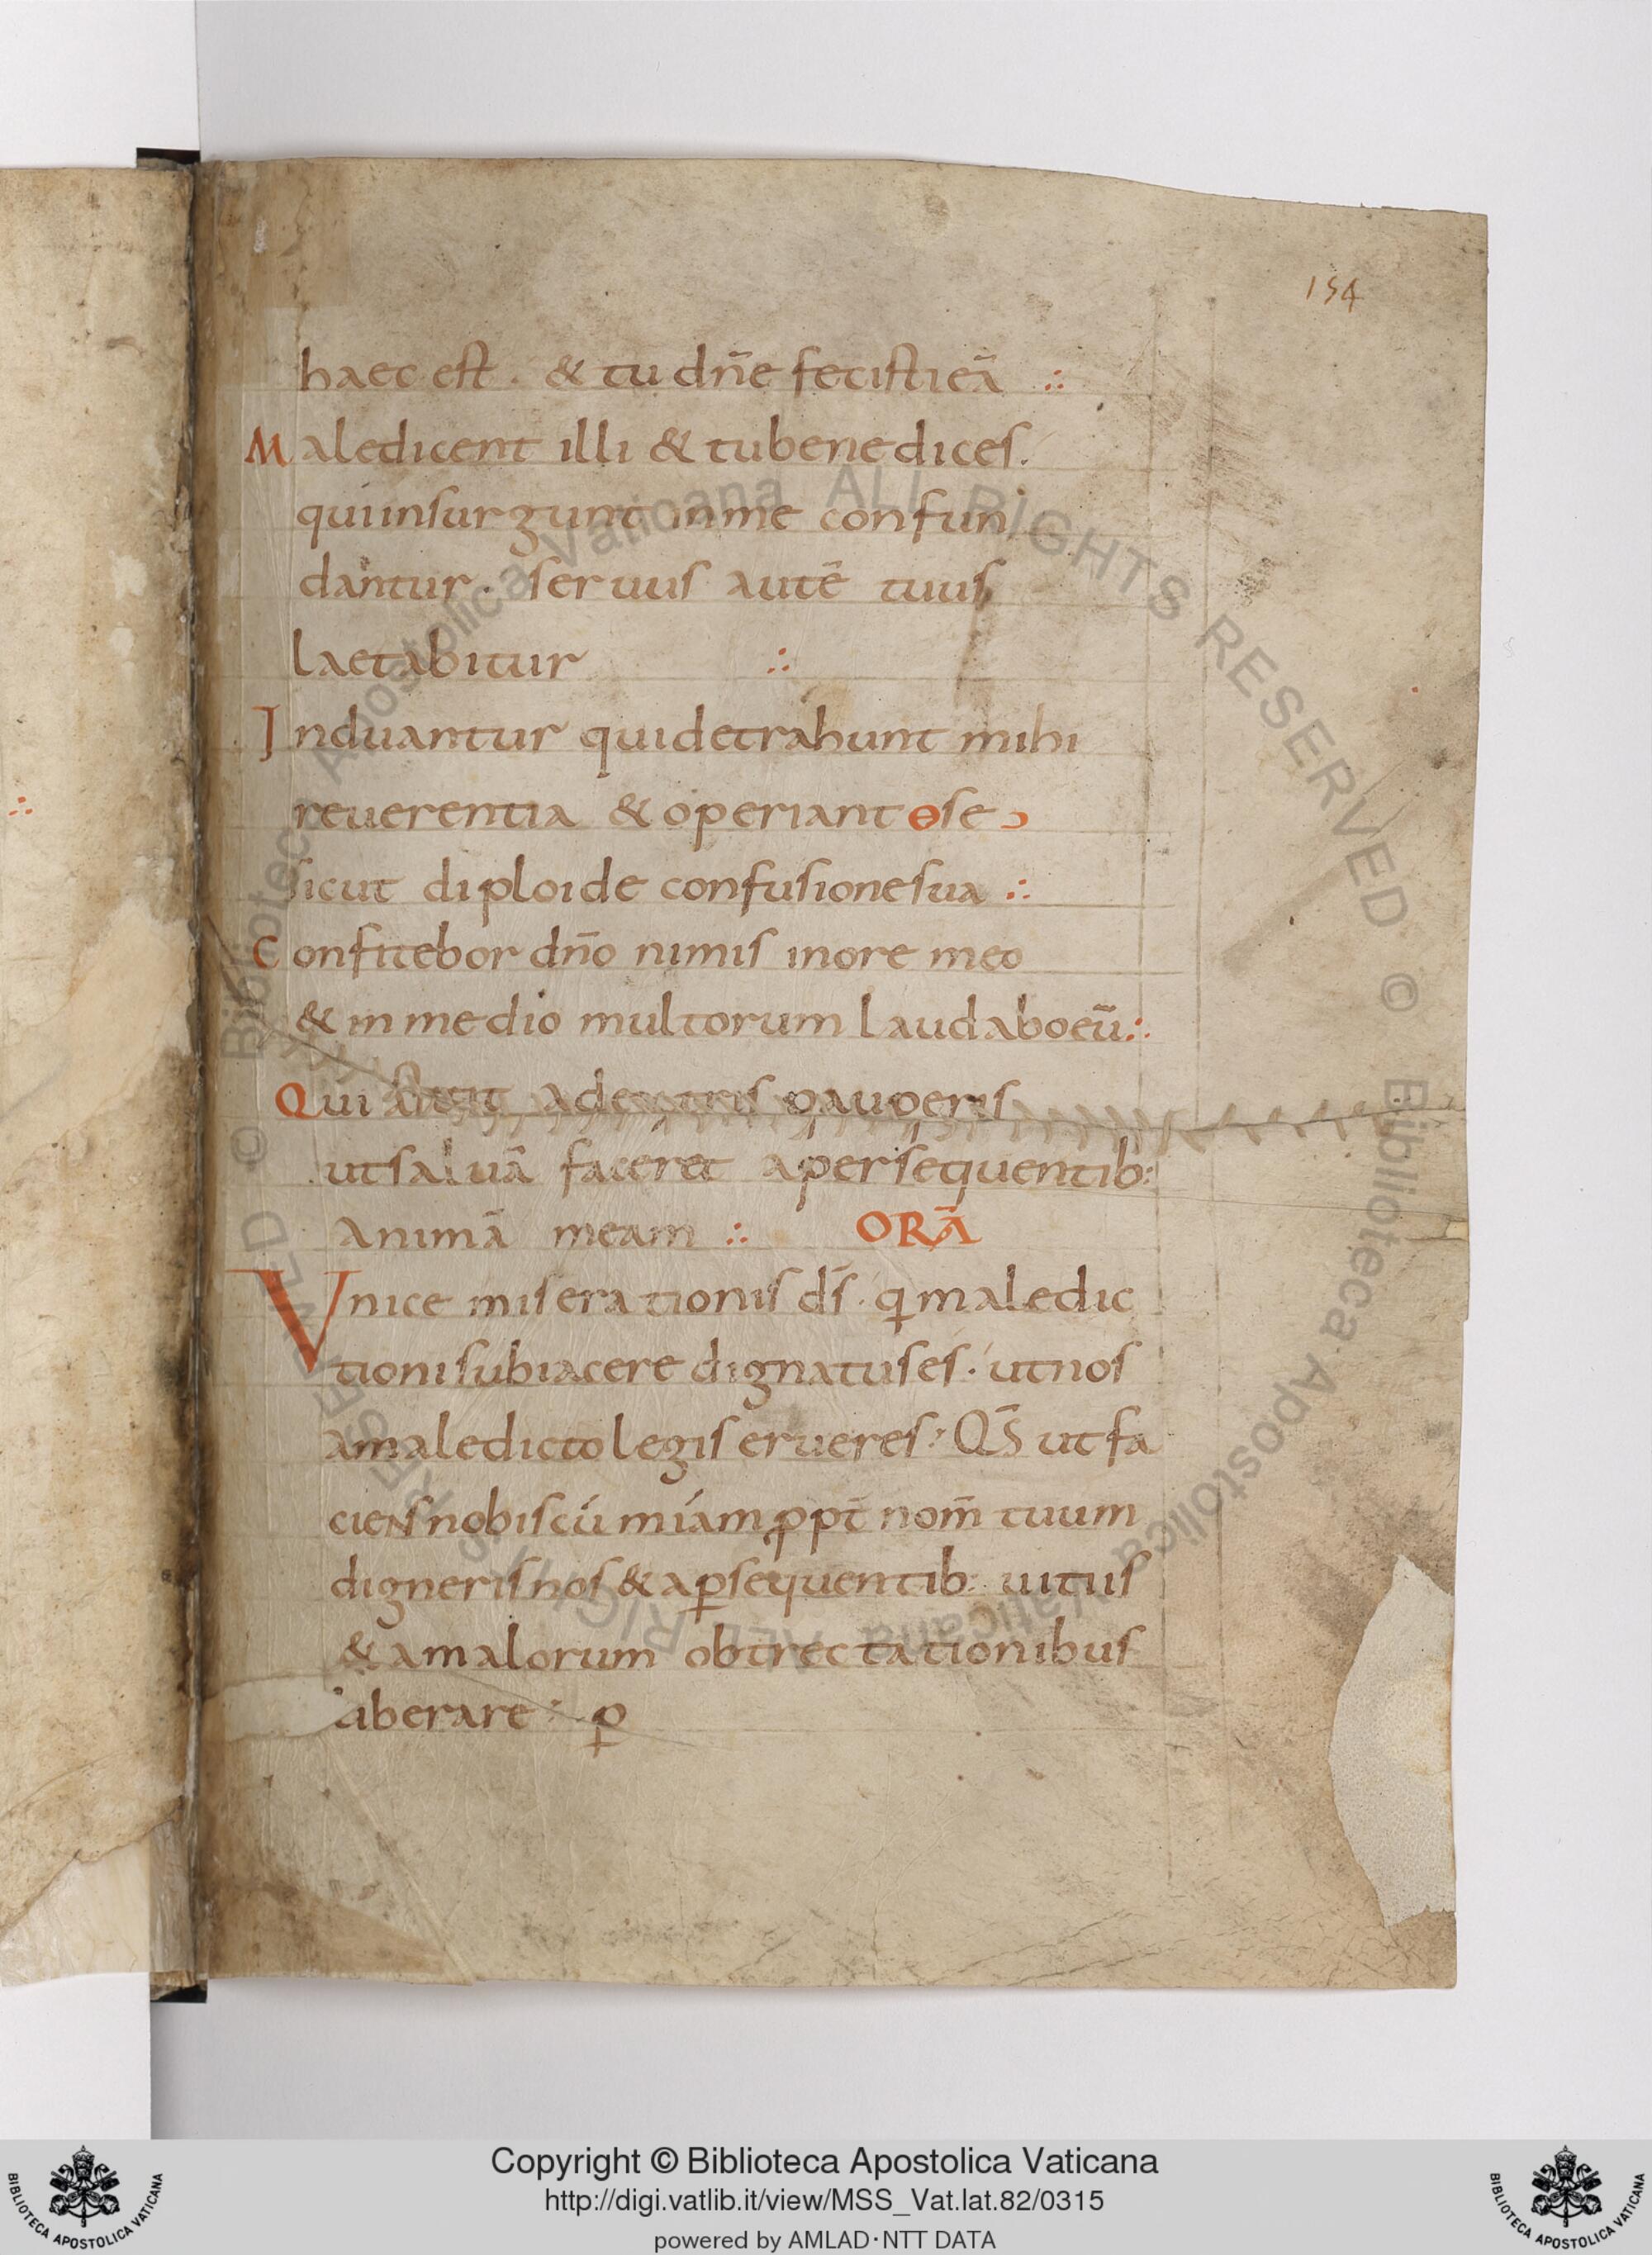 154
haec est . & tu dn̄e fecisti eā ∴
Maledicent illi & tu benedices .
qui insurgunt in me confun
dantur . seruus autē tuus
laetabitur ∴
Induantur qui detrahunt mihi
reuerentia & operiant se
sicut diploide confusione sua ∴
Confitebor dn̄o nimis in ore meo
& in medio multorum laudabo eū ∴
Qui astitit a dextris pauperis
ut saluā faceret a persequentib:
animā meam ∴ ORĀ
Vnice miserationis ds̄ . q maledic
tioni subiacere dignatus es . ut nos
a maledicto legis erueres : QS̄ ut fa
ciens nobiscū miam ppt̄ nom̄ tuum
digneris nos & a p̱sequentib: uitiis
& a malorum obtrectationibus
liberare : p̱
Copyright © Biblioteca Apostolica Vaticana
http://digi.vatlib.it/view/MSS_Vat.lat.82/0315
powered by AMLAD·NTT DATA
BIBLIOTECA APOSTOLICA VATICANA
BIBLIOTECA APOSTOLICA VATICANA
Biblioteca Apostolica Vaticana ALL RIGHTS RESERVED © Biblioteca Apostolica Vaticana ALL RIGHTS RESERVED ©